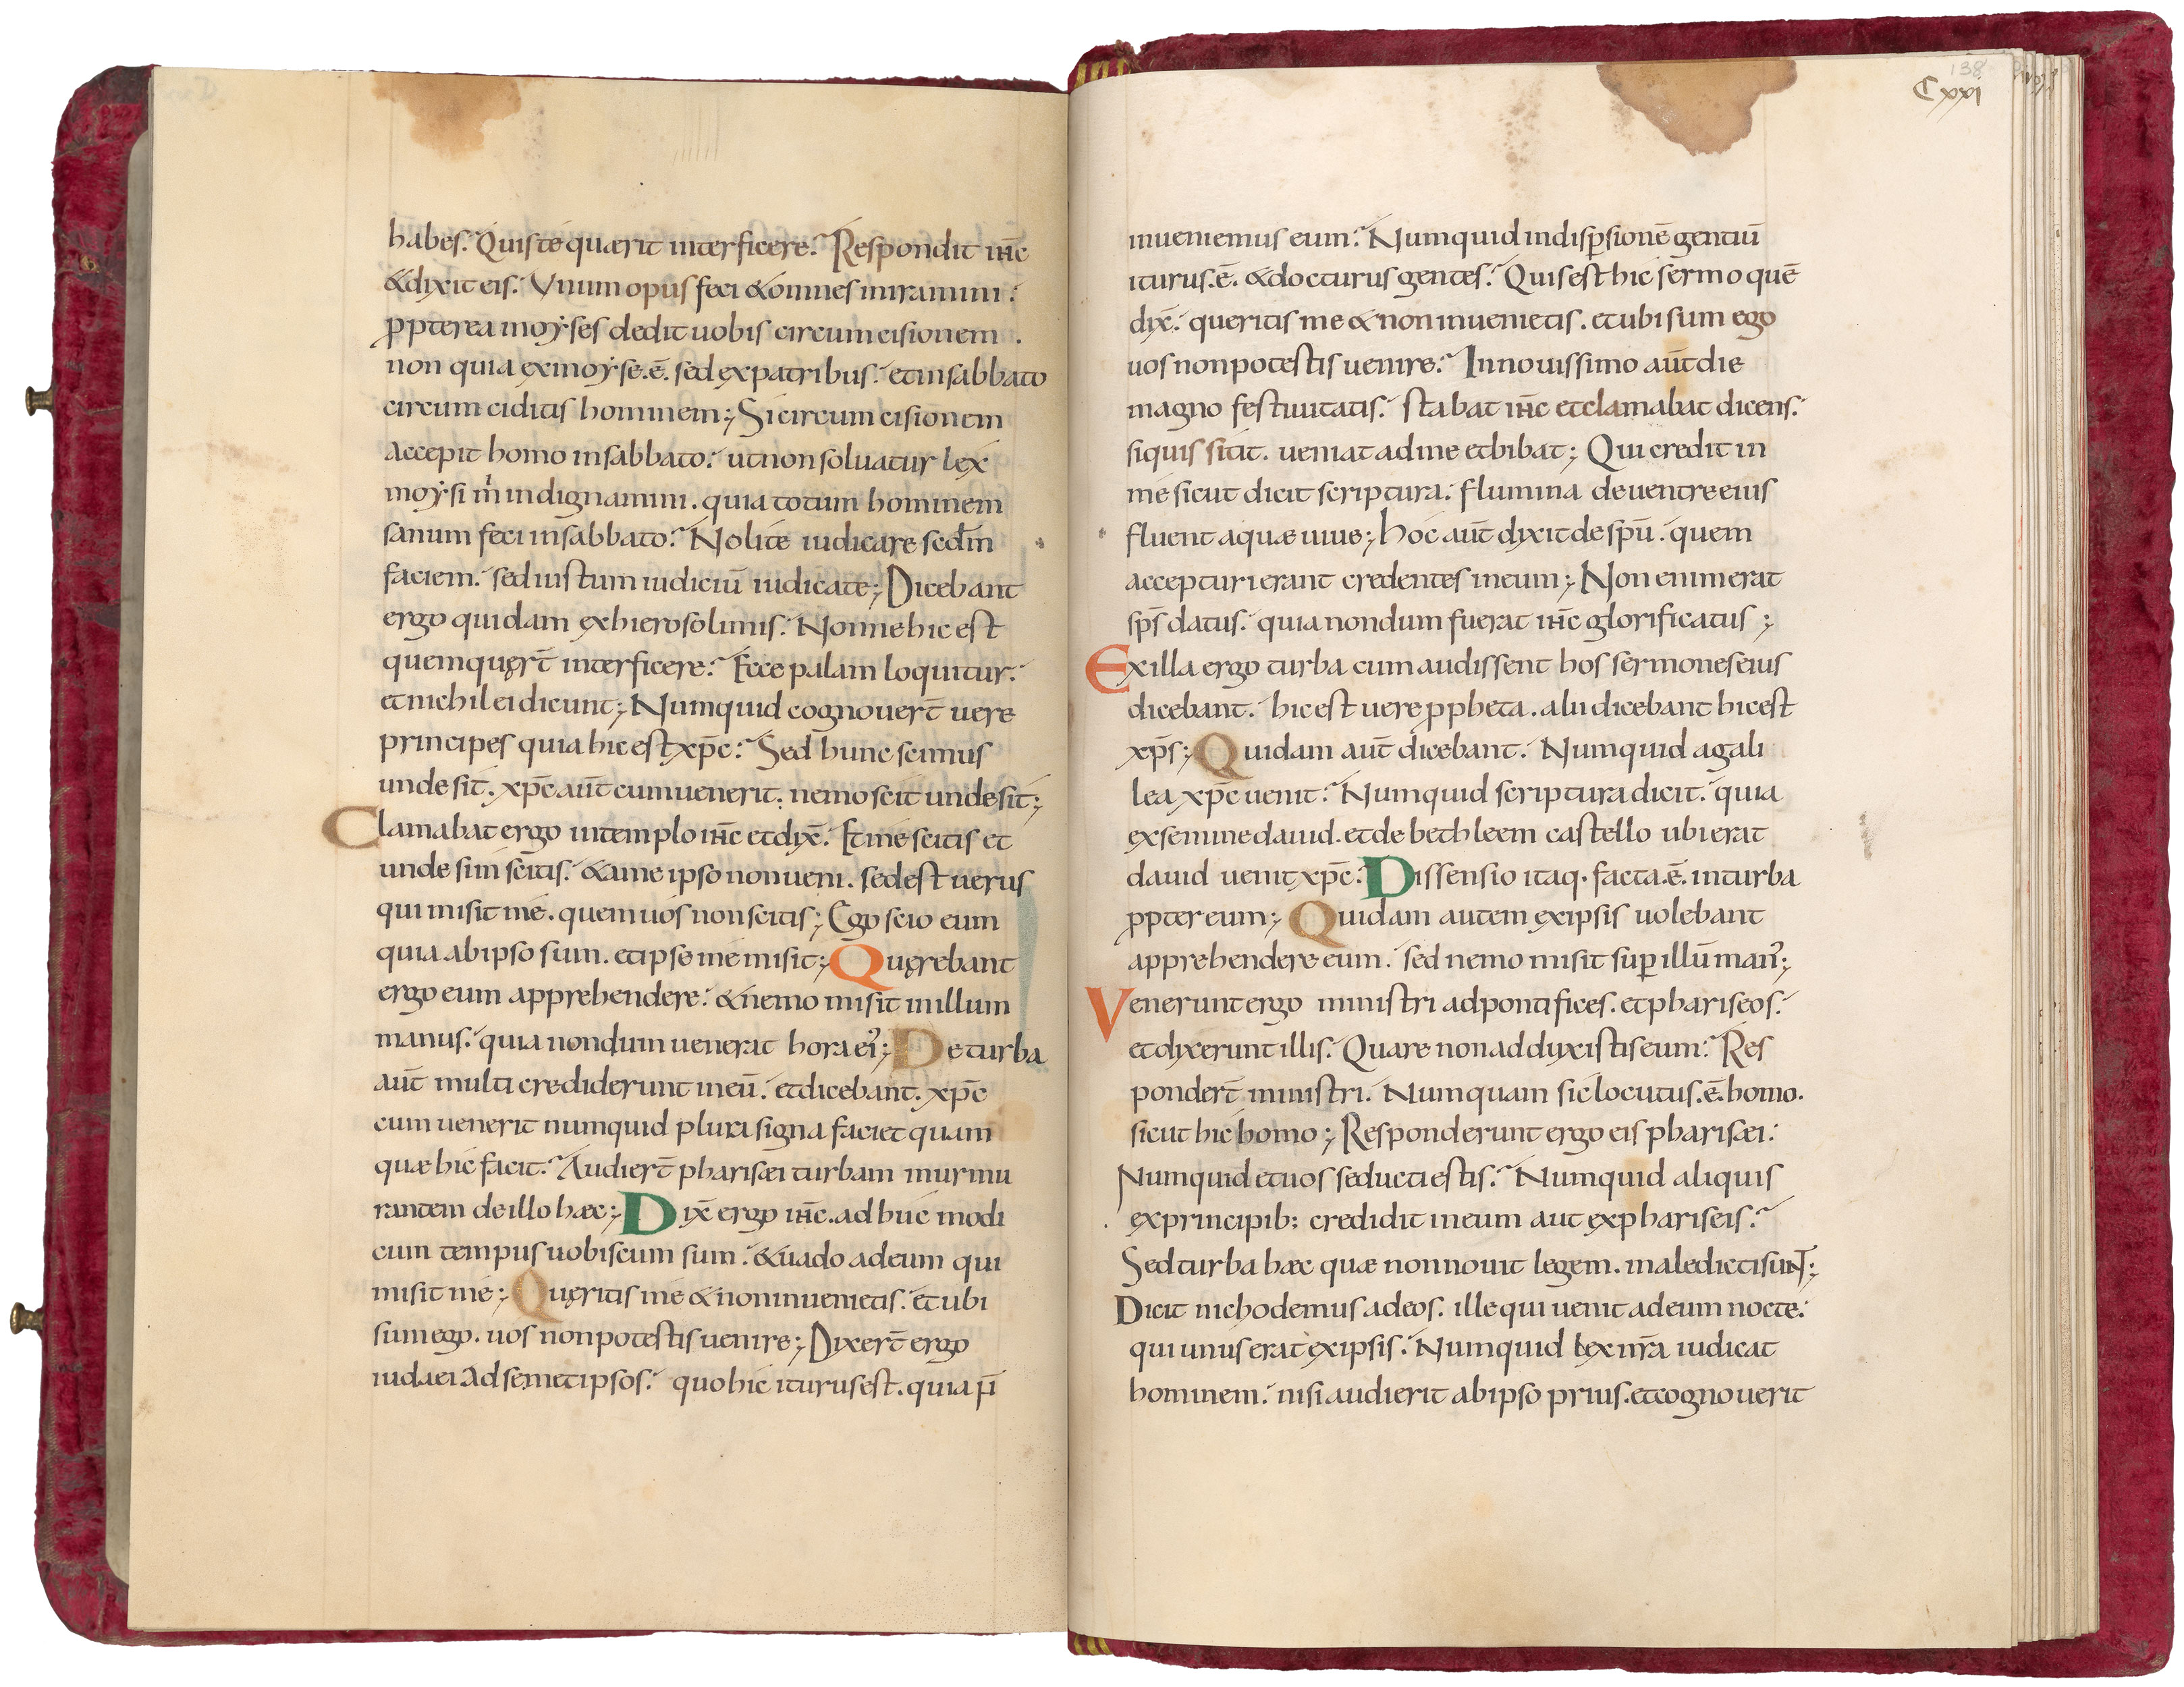 habes. Quis te quærit interficere? Respondit ihc̄
& dixit eis. Vnum opus feci & omnes miramini.
ꝓpterea moẏses dedit uobis circumcisionem.
non quia ex moẏse .ē. sed ex patribus. et in sabbato
circumciditis hominem; Si circumcisionem
accepit homo in sabbato. ut non soluatur lex
moẏsi m̍ indignamini. quia totum hominem
sanum feci in sabbato? Nolite iudicare scđm
faciem. sed iustum iudiciū iudicate; Dicebant
ergo quidam ex hierosolimis. Nonne hic est
quem quęrt̄ interficere? Ecce palam loquitur.
et nichil ei dicunt; Numquid cognouert̄ uere
principes quia hic est xpc̄? Sed hunc scimus
unde sit. xpc̄ aut̄ cum uenerit. nemo scit unde sit;
Clamabat ergo in templo ihc̄ et dix̄. Et me scitis et
unde sim scitis. & a me ipso non ueni. sed est uerus
qui misit me. quem uos non scitis; Ego scio eum
quia ab ipso sum. et ipse me misit; Quęrebant
ergo eum apprehendere. & nemo misit in illum
manus. quia nondum uenerat hora ei᾽; De turba
aut̄ multi crediderunt in eū. et dicebant. xpc̄
cum uenerit numquid plura signa faciet quam
quæ hic facit? Audiert̄ pharisæi turbam murmu
rantem de illo hæc; Dix̄ ergo ihc̄. adhuc modi
cum tempus uobiscum sum. & uado ad eum qui
misit me; Quęritis me & non inuenietis. et ubi
sum ego. uos non potestis uenire; Dixert̄ ergo
iudaei ad semetipsos. quo hic iturus est. quia ñ
Cxxi
138
inueniemus eum? Numquid in disꝑsionē gentiū
iturus .ē. & docturus gentes? Quis est hic sermo quē
dix̄. queritis me & non inuenietis. et ubi sum ego
uos non potestis uenire? In nouissimo aut̄ die
magno festiuitatis. stabat ihc̄ et clamabat dicens.
si quis sitit. ueniat ad me et bibat; Qui credit in
me sicut dicit scriptura. flumina de uentre eius
fluent aquæ uiue; hoc aut̄ dixit de spū. quem
accepturi erant credentes in eum; Non enim erat
sps̄ datus. quia nondum fuerat ihc̄ glorificatus;
Ex illa ergo turba cum audissent hos sermones eius
dicebant. hic est uere ꝓpheta. alii dicebant hic est
xps̄; Quidam aut̄ dicebant. Numquid a gali
lea xpc̄ uenit? Numquid scriptura dicit. quia
ex semine dauid. et de bethleem castello ubi erat
dauid uenit xpc̄? Dissensio itaq. facta .ē. in turba
ꝓpter eum; Quidam autem ex ipsis uolebant
apprehendere eum. sed nemo misit suꝑ illū man᾽;
Venerunt ergo ministri ad pontifices. et phariseos.
et dixerunt illis. Quare non adduxistis eum? Res
pondert̄ ministri. Numquam sic locutus .ē. homo.
sicut hic homo; Responderunt ergo eis pharisæi.
Numquid et uos seducti estis? Numquid aliquis
ex principib; credidit in eum aut ex phariseis?
Sed turba hæc quæ non nouit legem. maledicti sunt;
Dicit nichodemus ad eos. ille qui uenit ad eum nocte.
qui unus erat ex ipsis. Numquid lex nr̄a iudicat
hominem. nisi audierit ab ipso prius. et cognouerit